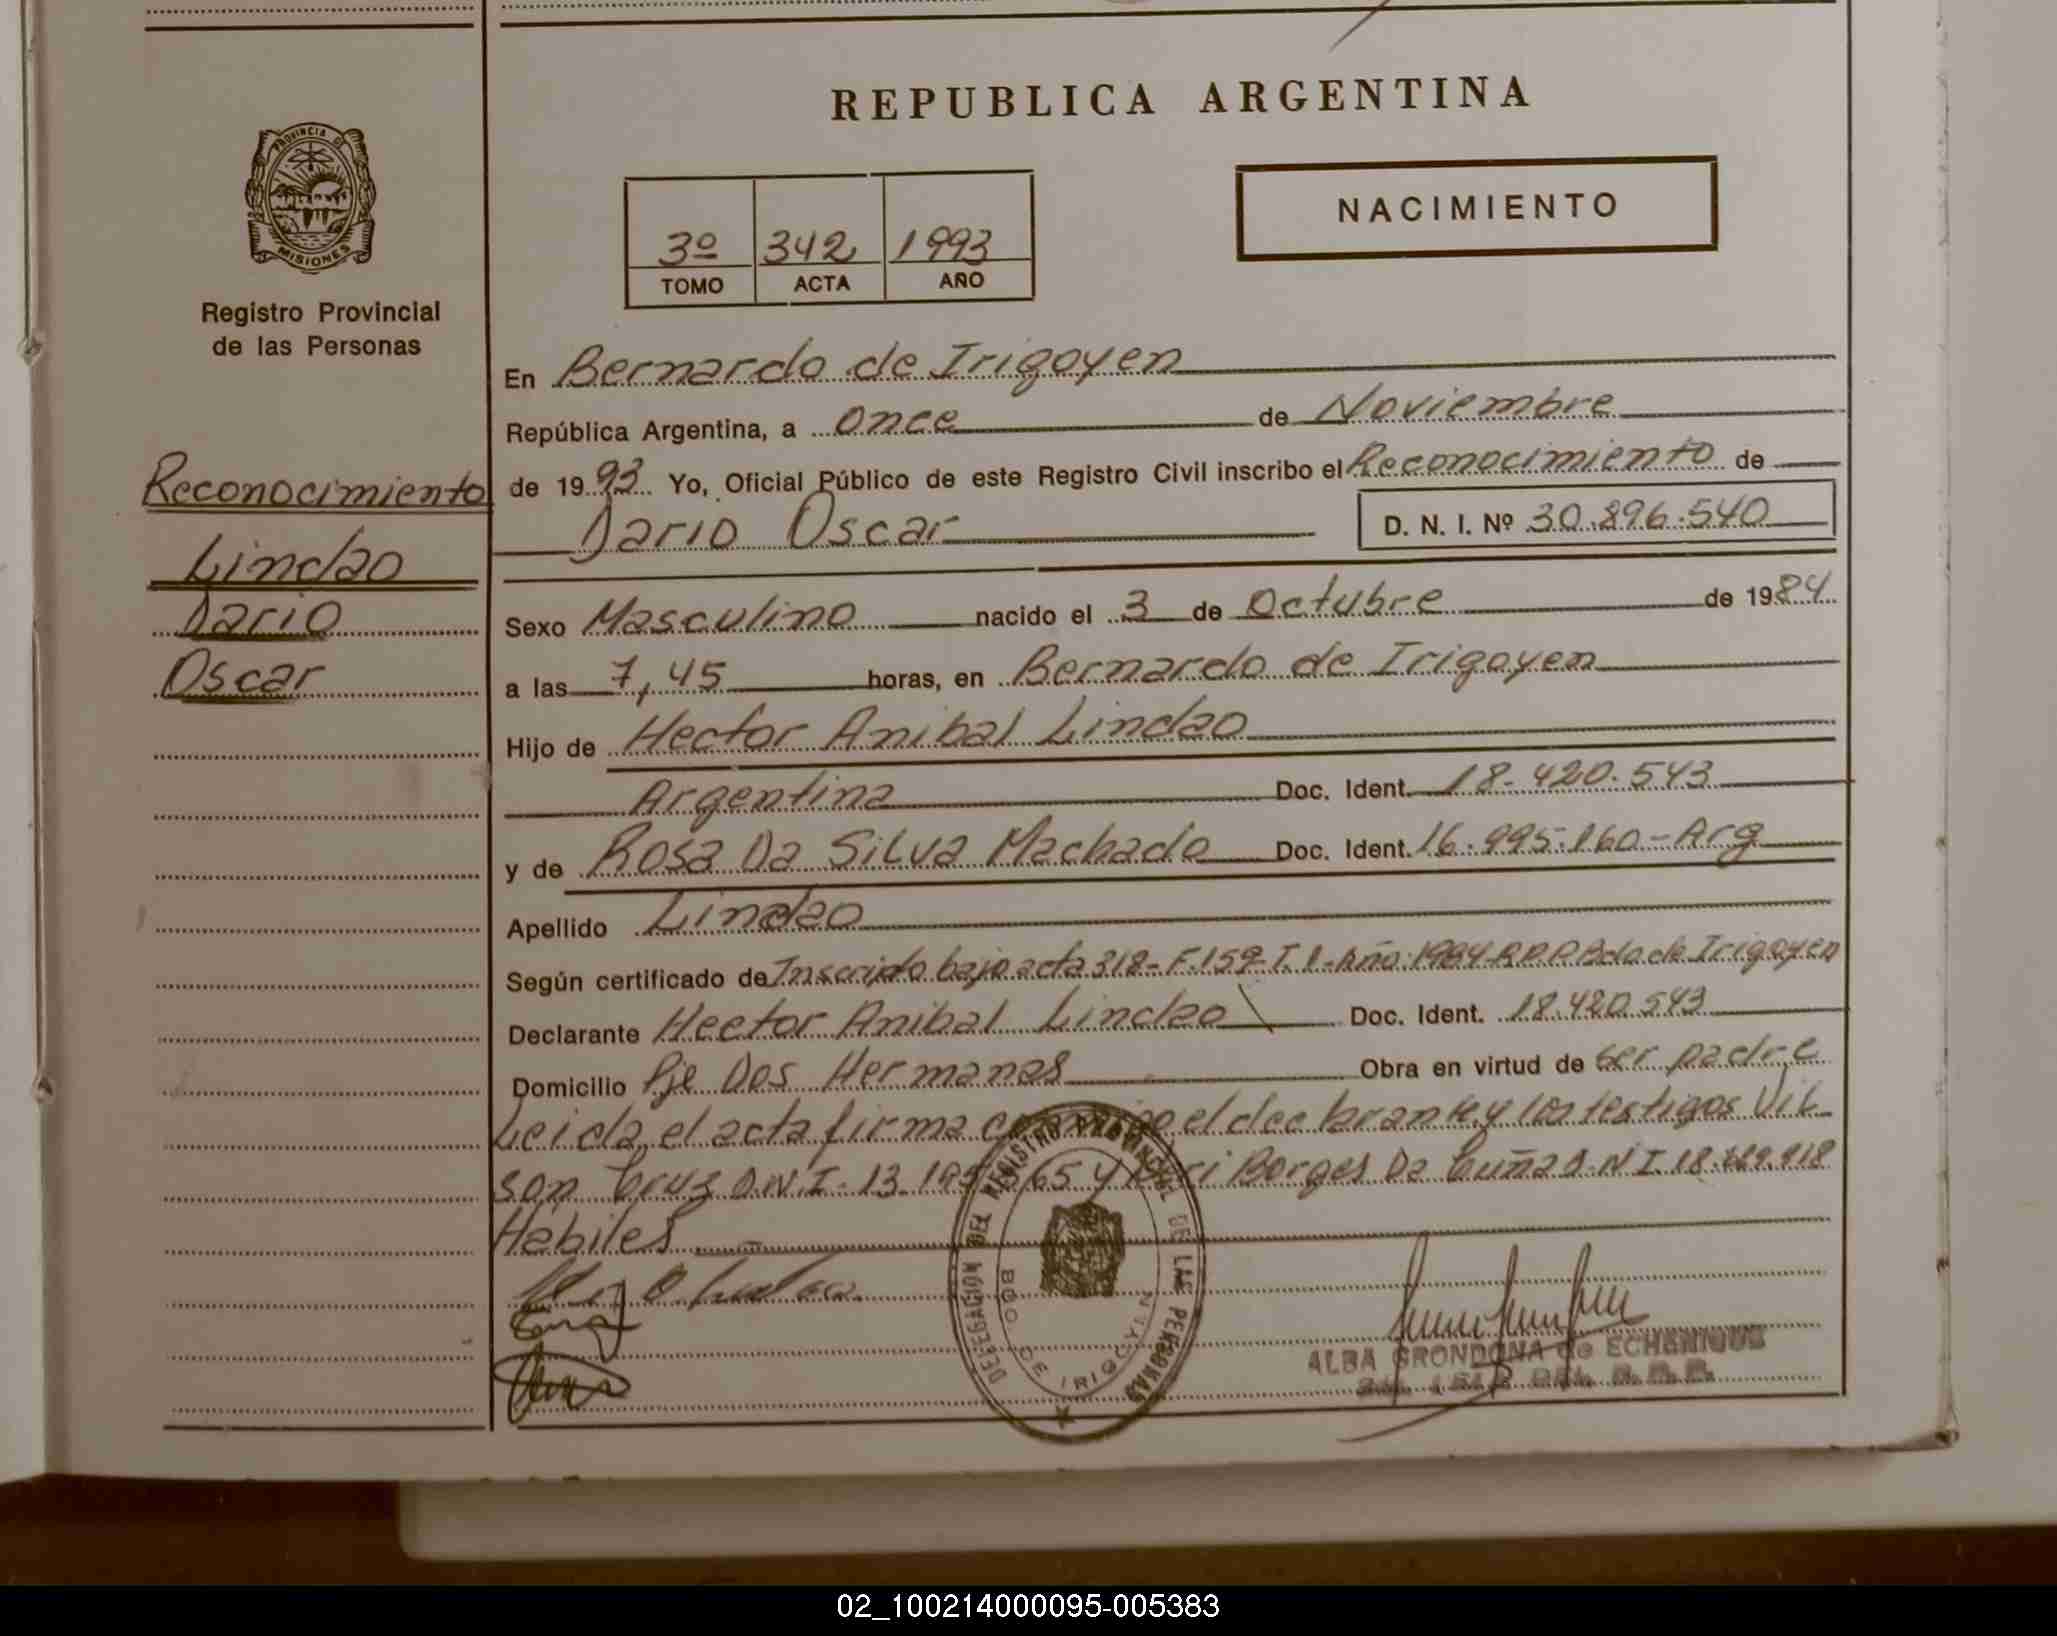 REPUBLICA ARGENTINA
PROVINCIA DE
MISIONES
Registro Provincial
de las Personas
3º 342 1993
TOMO ACTA AÑO
NACIMIENTO
Reconocimiento
Lindao
Dario
Oscar
En Bernardo de Irigoyen
República Argentina, a once de Noviembre
de 1993 Yo, Oficial Público de este Registro Civil inscribo el Reconocimiento de
Dario Oscar D. N. I. Nº 30.896.540
Sexo Masculino nacido el 3 de Octubre de 1984
a las 7,45 horas, en Bernardo de Irigoyen
Hijo de Hector Anibal Lindao
Argentina Doc. Ident. 18.420.543
y de Rosa Da Silva Machado Doc. Ident. 16.995.160-Arg
Apellido Lindao
Según certificado de Inscripto bajo acta 318-F.159-T.1-Año:1984-R.P.P. Bdo de Irigoyen
Declarante Hector Anibal Lindao Doc. Ident. 18.420.543
Domicilio Pje Dos Hermanas Obra en virtud de ser padre
Leida, el acta firma conmigo el declarante y los testigos Vil
son Cruz D.N.I. 13. 65 y Borges Da Cuña D.N.I. 18. .918
Habiles
DELEGACION DEL REGISTRO PROVINCIAL DE LAS PERSONAS
BDO DE IRIGOYEN
ALBA GRONDONA de ECHENIQUE
02_100214000095-005383